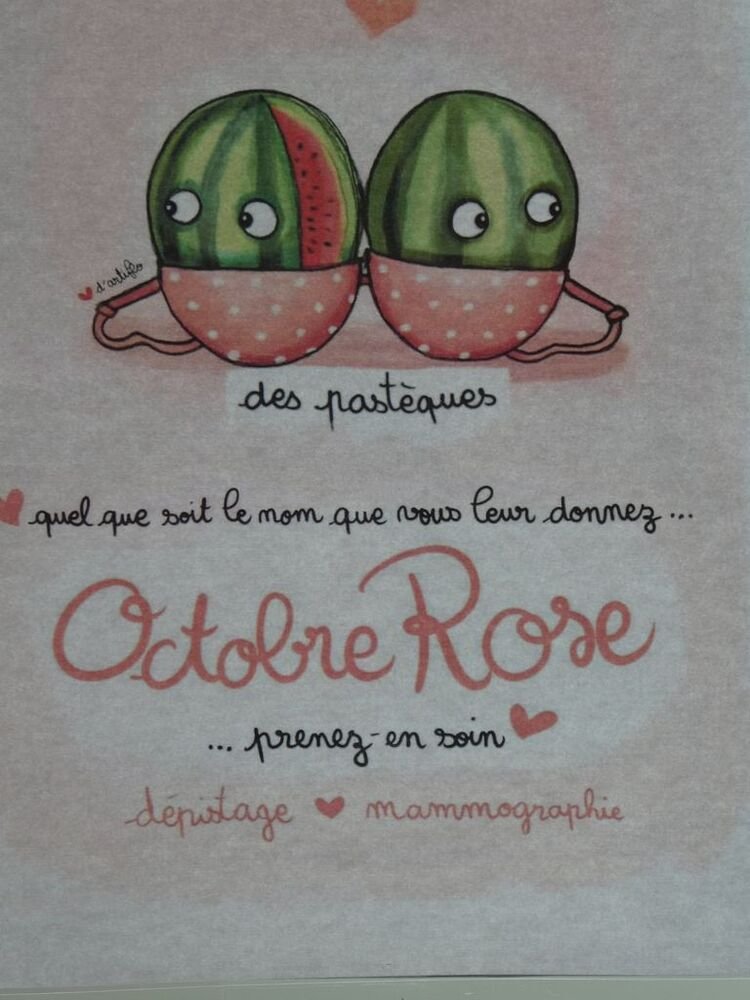 d'artiflo
des pastèques
quel que soit le nom que vous leur donnez ...
Octobre Rose
... prenez-en soin
dépistage mammographie